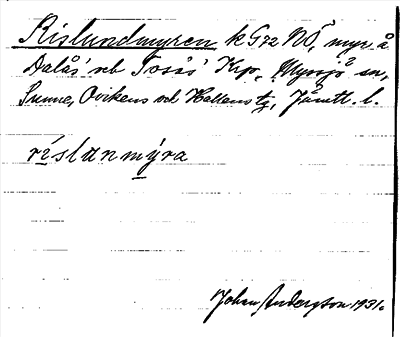 Rislundmyren k G72 NÖ, myr å
Dalås' och Tosås' Krp, Myssjö sn,
Sunne, Ovikens och Hallens tg, Jämtl. l.
ríslanmýra
Johan Anderzson 1931.